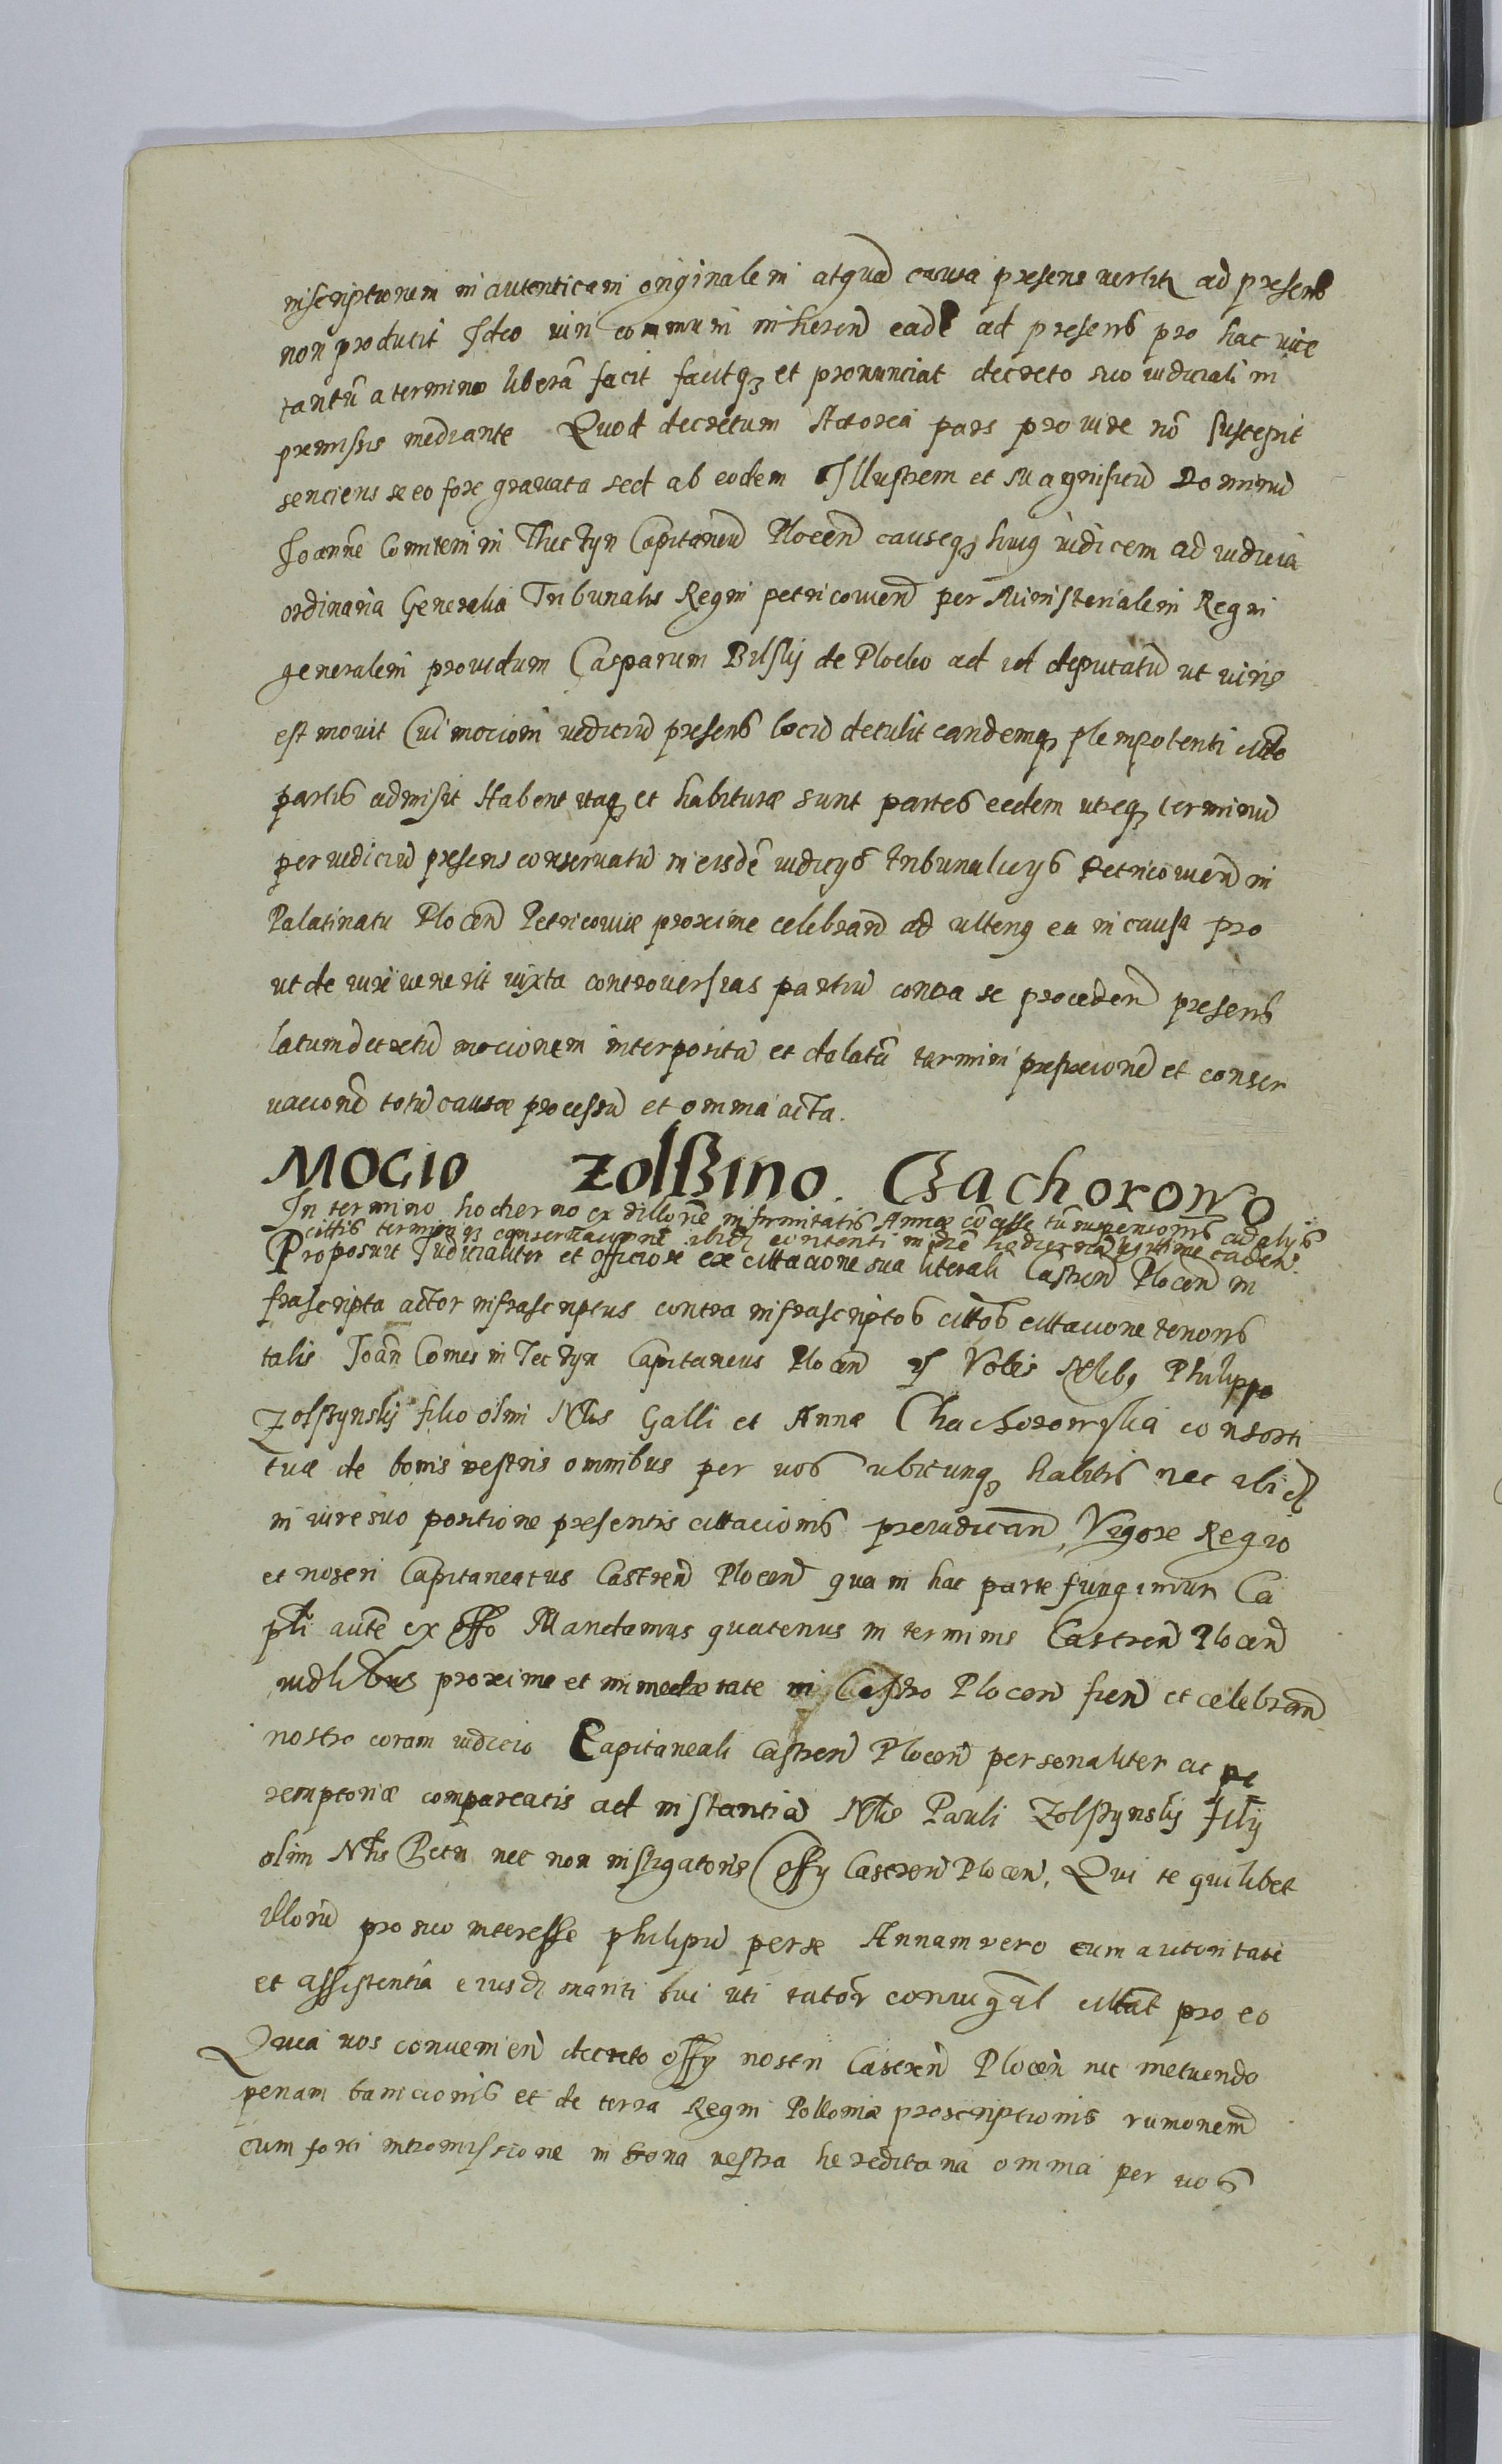 inscriptionem in autenticam originalem atquā causa presens vertitr ad presens
non producit Ideo viri communi inherend eadē ad presens pro hac vice
tantū a termino liberā facit facitq et pronunciat decreto suo iudiciali in
premissis mediante Quod decretum Actorea pars pro iure nō suscepit
senciens se eo fore gravata sed ab eodem Illustrem et Magnificū Dominū
Joannē Comitem in Thectyn Capitaneū Plocen causeq huiq iudicem ad iudicia
ordinaria Generalia Tribunalis Regni petricovien per Ministerialem Regni
generalem providum Casparum Bilsky de Plocko ad id deputatū ut iuris
est movit Cui mocioni iudiciū presens locū detulit eandemq plenipotenti
partis admisit Habent itaq et habituræ sunt partes eedem utreq terminū
per iudiciū presens conservatū in eisdē iudicys tribunalicys Petricovien in
Palatinatu Plocen Petricoviæ proxime celebran ad ulteriq ea in causa pro
ut de iure venerit iuxta controversias partiū contra se proceden presens
latum decretū mocionem interpositā et delatā termini prefixionē et conser
vacionē totū causæ processū et omnia acta.
MOCIO Zolßino. Czachorowo
In termino hodierno ex dillone infirmitatis Annæ cōcesse tū suspensionis ad alys
cittis termini conservacione ibidē contenti in diē hodiernā legitime caden.
Proposuit Judicialiter et officiose ex cittacione sua literali Castren Plocen in
frascripta actor infrascriptus contra infrascriptos cittos cittacione tenoris
talis Joan Comes in Tectyn Capitaneus Plocen Vobis Nlibq Philippo
Zolßynsky filio olim Nlis Galli et Annæ Chachorowska consorti
tuæ de bonis vestris omnibus per vos ubicunq habitis nec alicl
in iure suo portione presentis cittacionis preiudican, Vigore Regio
et nostri Capitaneatus Castren Plocen qua in hac parte fungimur Ca
pli autē ex offo Mandamus quatenus in terminis Castren Plocen
iudlibus proxime et immediate in Castro Plocen fien et celebran
nostro coram iudicio Capitaneali Castren Plocen personaliter ac pe
remptoriæ compareatis ad instantiā Nlis Pauli Zolßynsky fily
olim Nlis Petri nec non instigatoris offy Castren Plocen, Qui te quilibet
illorū pro suo interesse philipū per se Annam vero cum autoritate
et assistentia eiusd mariti sui uti tutor coniugal cittat pro eo
Quia vos convenien decreto offy nostri Castren Plocen nec metuendo
penam banicionis et de terra Regni Polloniæ proscriptionis
cum forti intromissione in bona vestra hereditaria omnia per vos